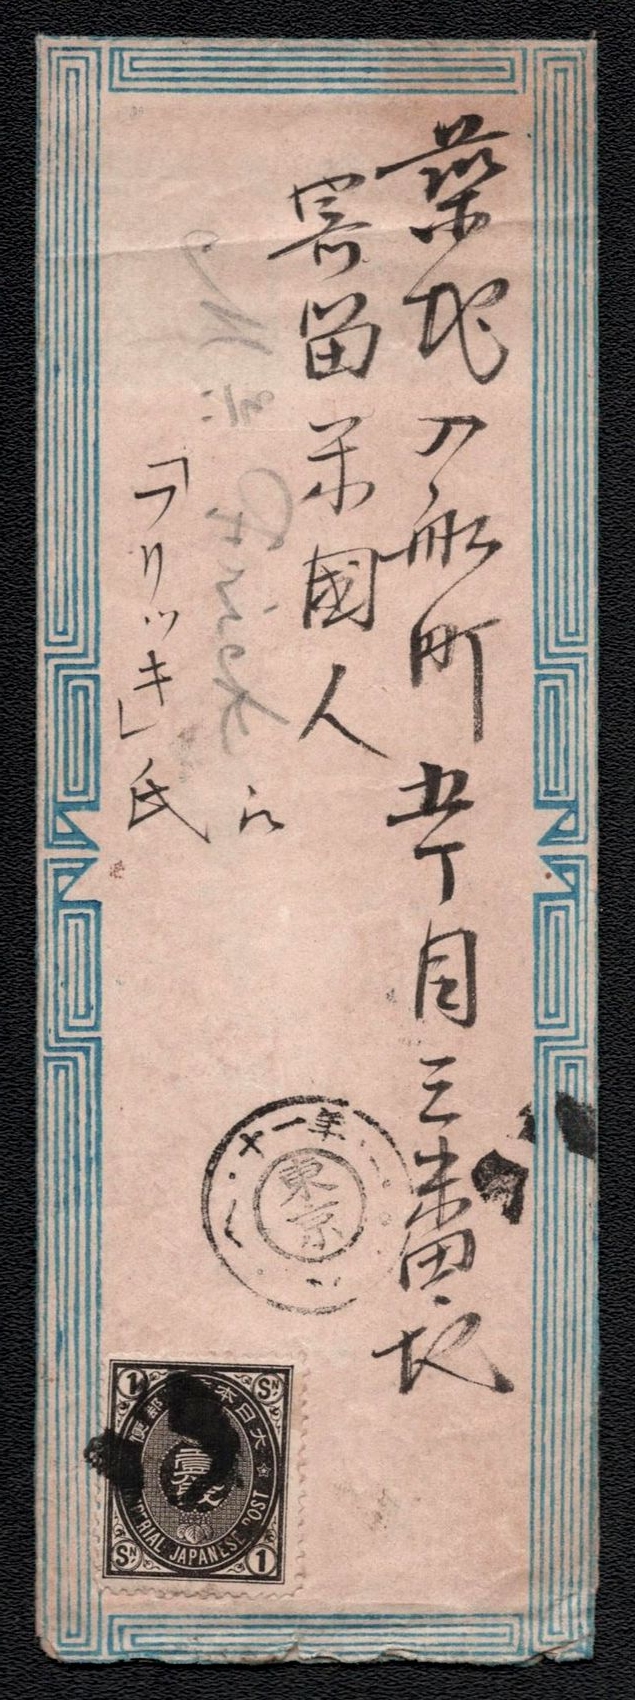 築地入舩町五丁目三番地
寄留米國人
「フリッキ」氏
十一年
東京
大日本郵便
壹錢
1 SN
SN 1
IMPERIAL JAPANESE POST